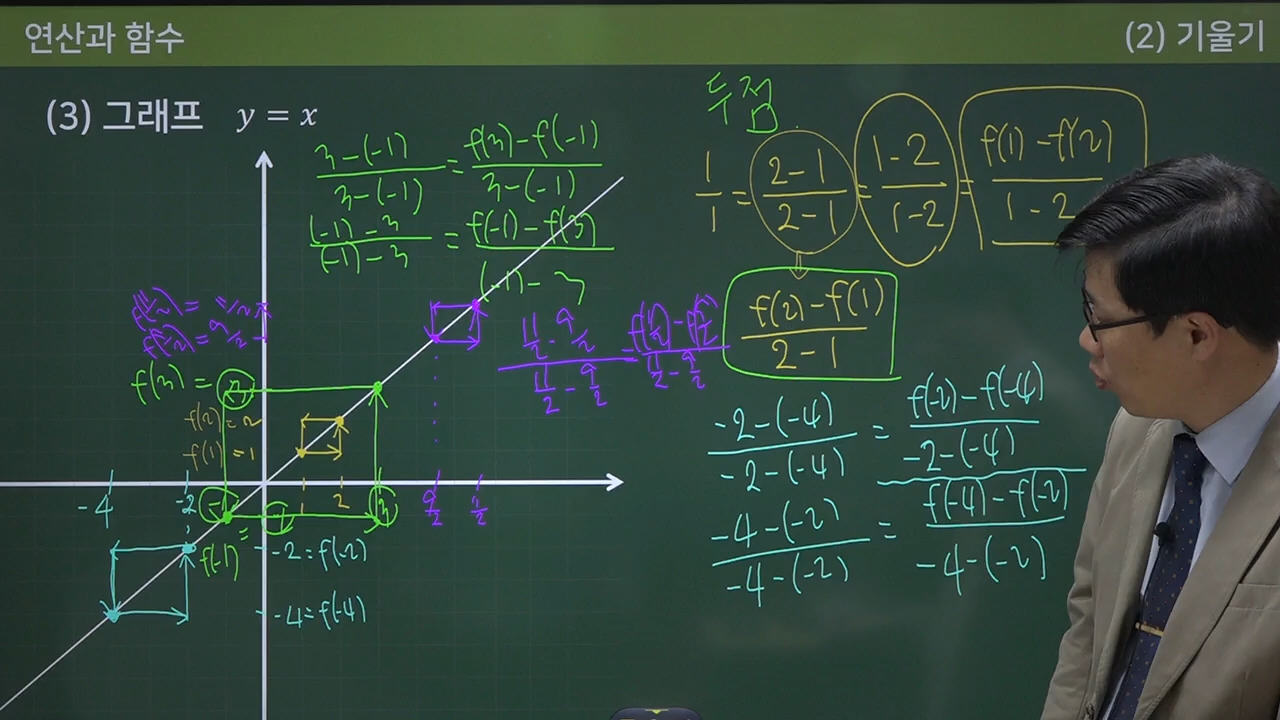 연산과 함수
(2) 기울기
(3) 그래프 y = x
두 점
3-(-1) / 3-(-1) = f(3)-f(-1) / 3-(-1)
(-1)-3 / (-1)-3 = f(-1)-f(3) / (-1)-3
1/1 = 2-1 / 2-1 = 1-2 / 1-2 = f(1)-f(2) / 1-2
f(2)-f(1) / 2-1
f(11/2) = 11/2
f(9/2) = 9/2
11/2 - 9/2 / 11/2 - 9/2 = f(11/2)-f(9/2) / 11/2 - 9/2
f(3) = 3
f(2) = 2
f(1) = 1
-4 -2 -1 1 2 3 9/2 11/2
f(-1) = -1
-2 = f(-2)
-4 = f(-4)
-2-(-4) / -2-(-4) = f(-2)-f(-4) / -2-(-4)
-4-(-2) / -4-(-2) = f(-4)-f(-2) / -4-(-2)